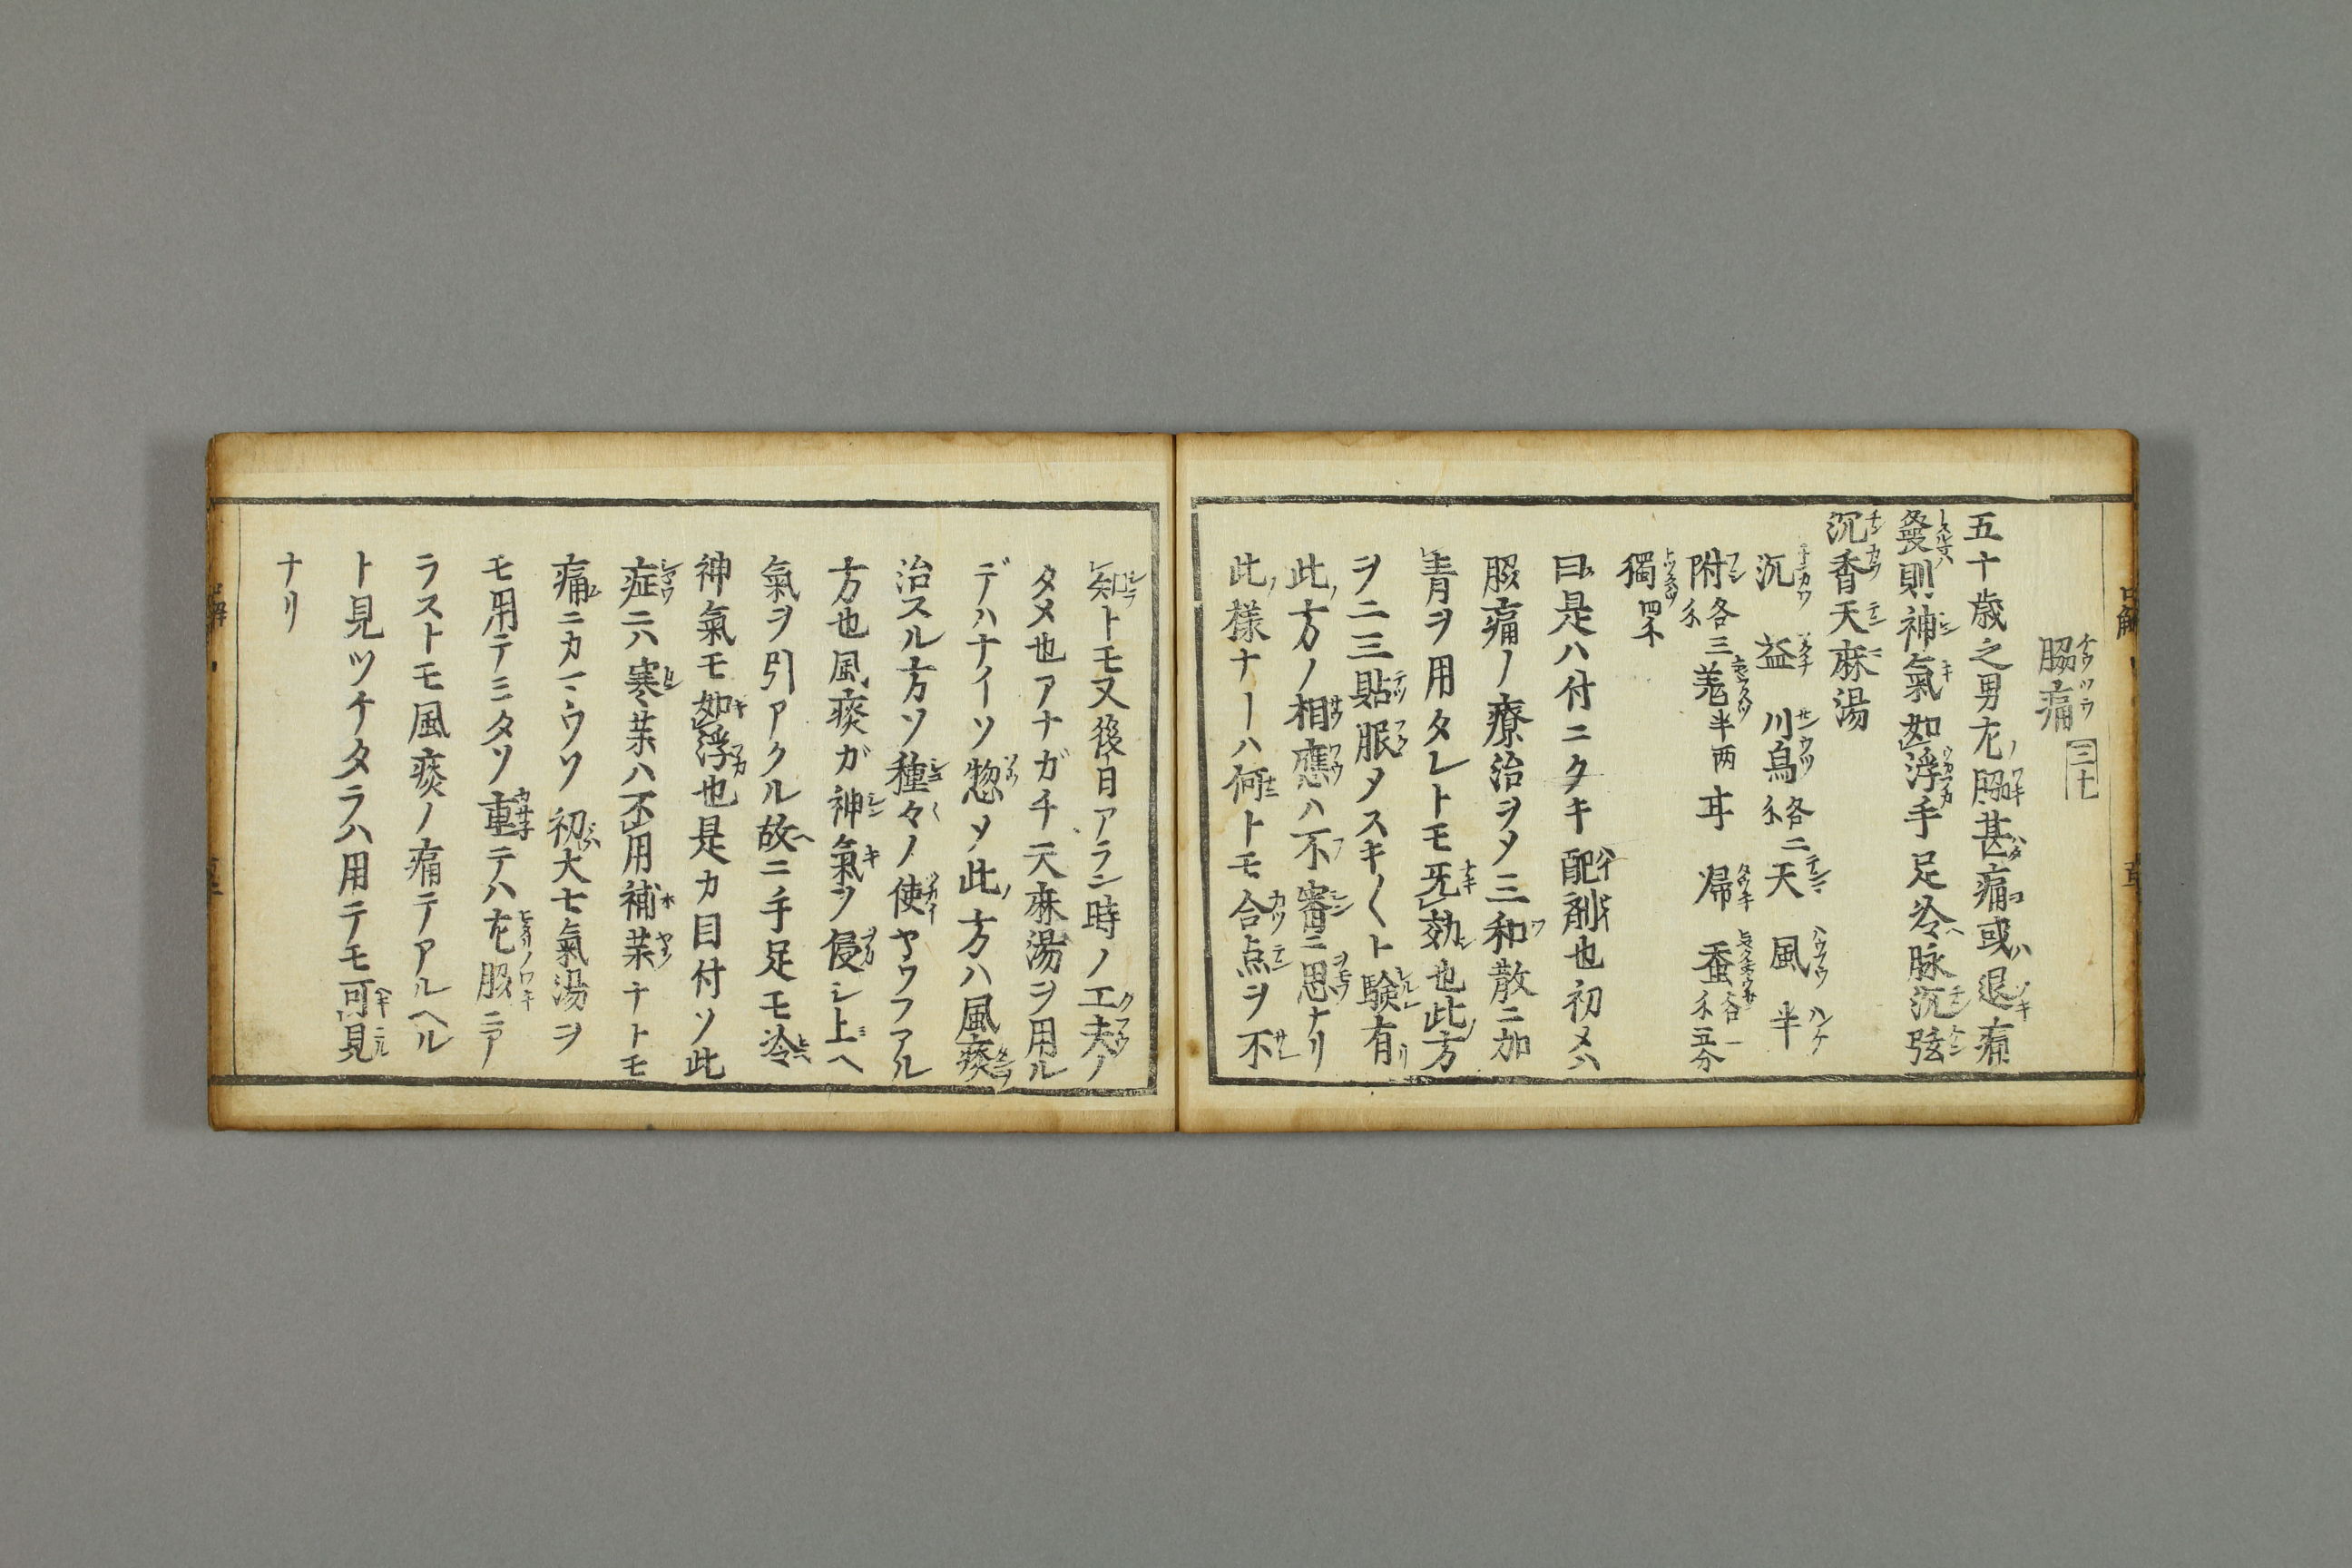 脇痛 三十七
五十歳之男左脇甚痛或退痛
發則神氣如浮手足冷脉沉弦
沉香天麻湯
沉 益 川烏各二天 風 半
附各三羗半两 耳 帰 蚕各五分
獨四
曰是ハ付ニクキ配剤也初メハ
脇痛ノ療治ヲメ三和散ニ加
青ヲ用タレトモ无効也此方
ヲ二三貼服メスキ〱ト験有
此方ノ相應ハ不審ニ思ナリ
此様ナーハ何トモ合点ヲ不
知トモ又後日アラン時ノ工夫ノ
タメ也アナガチ天麻湯ヲ用ル
デハナイソ惣メ此方ハ風痰
治スル方ソ種々ノ使ヤウフアル
方也風痰ガ神氣ヲ侵シ上ヘ
氣ヲ引アクル故ニ手足モ冷
神氣モ如浮也是カ目付ソ此
症ニハ寒藥ハ不用補藥ナトモ
痛ニカマウソ初大七氣湯ヲ
モ用テミタソ重テハ左脇ニア
ラストモ風痰ノ痛テアルヘル
ト見ツケタラハ用テモ可見
ナリ